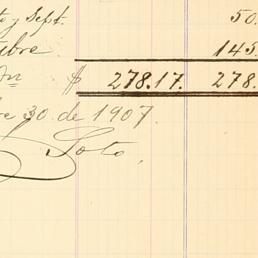 to y Sept. 50.
ubre 145.
$ 278.17. 278.
re 30 de 1907.
Soto,